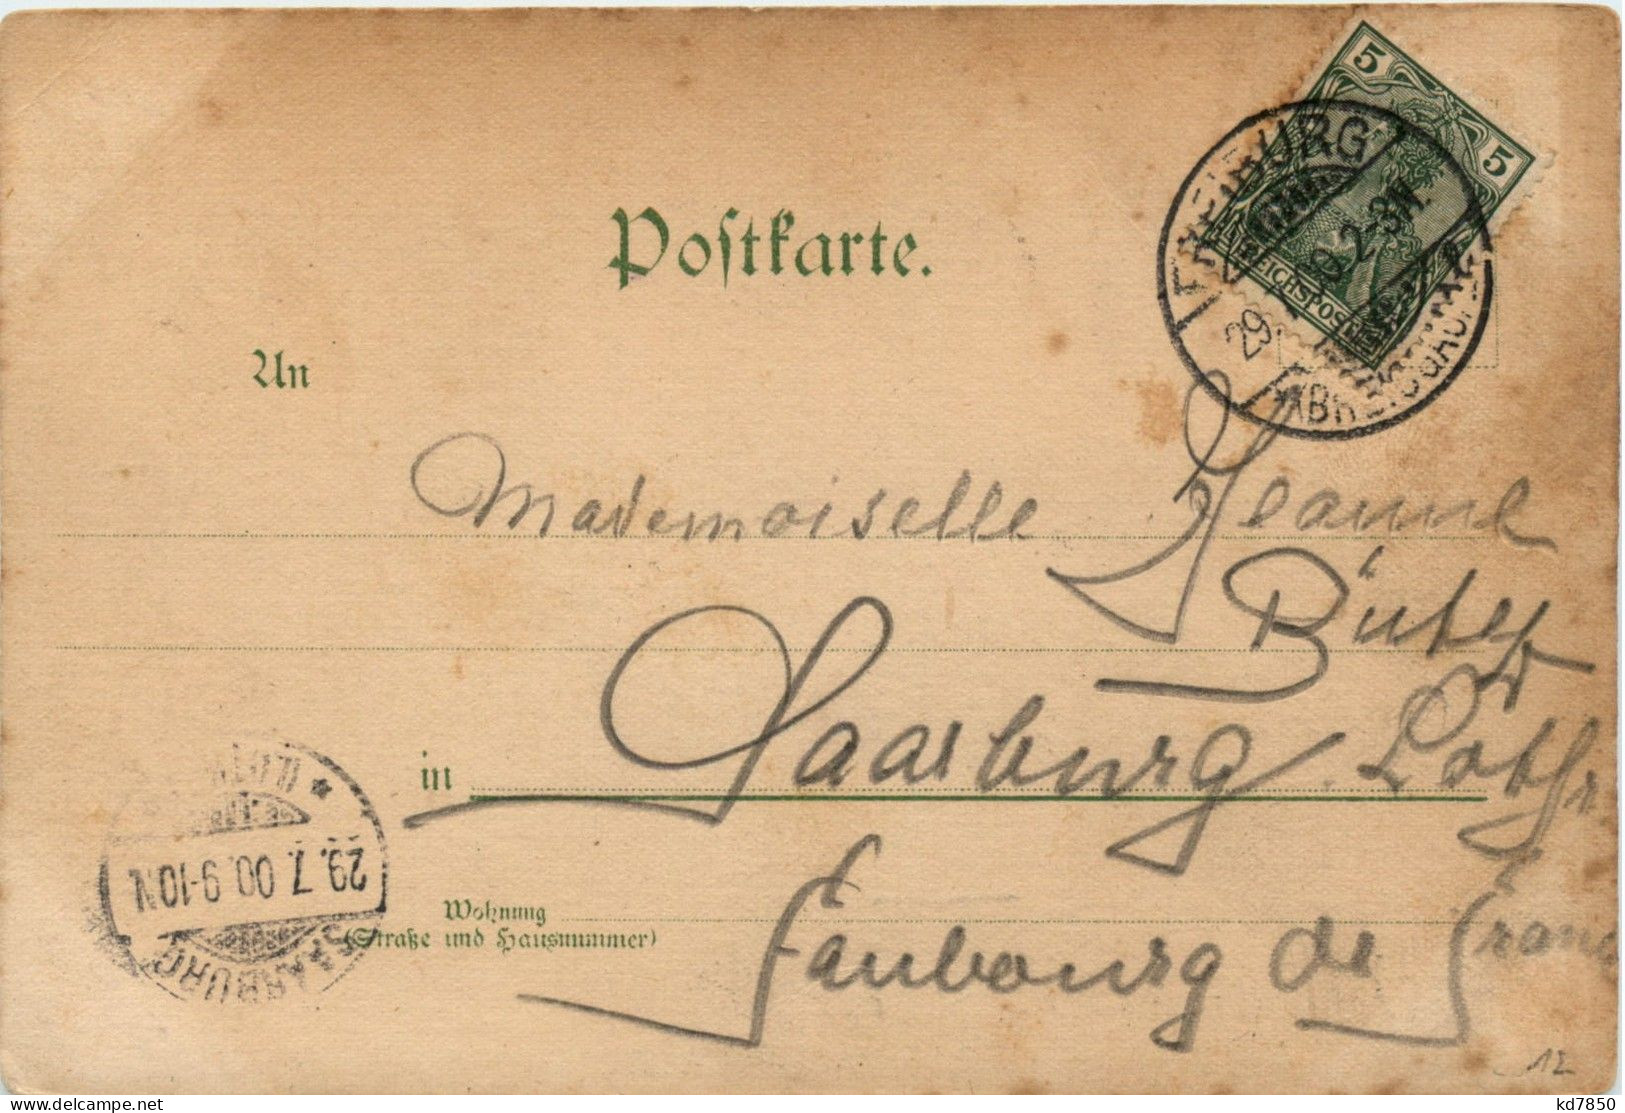 5
5
REICHSPOST
FREIBURG
29. 2-3N.
(BREISGAU)
Postkarte.
An
Mademoiselle Jeanne
in Saarburg. Lothr
29.7.00.9-10N.
SAARBURG
Wohnung
(Straße und Hausnummer)
Faubourg de Franc
12
kd7850